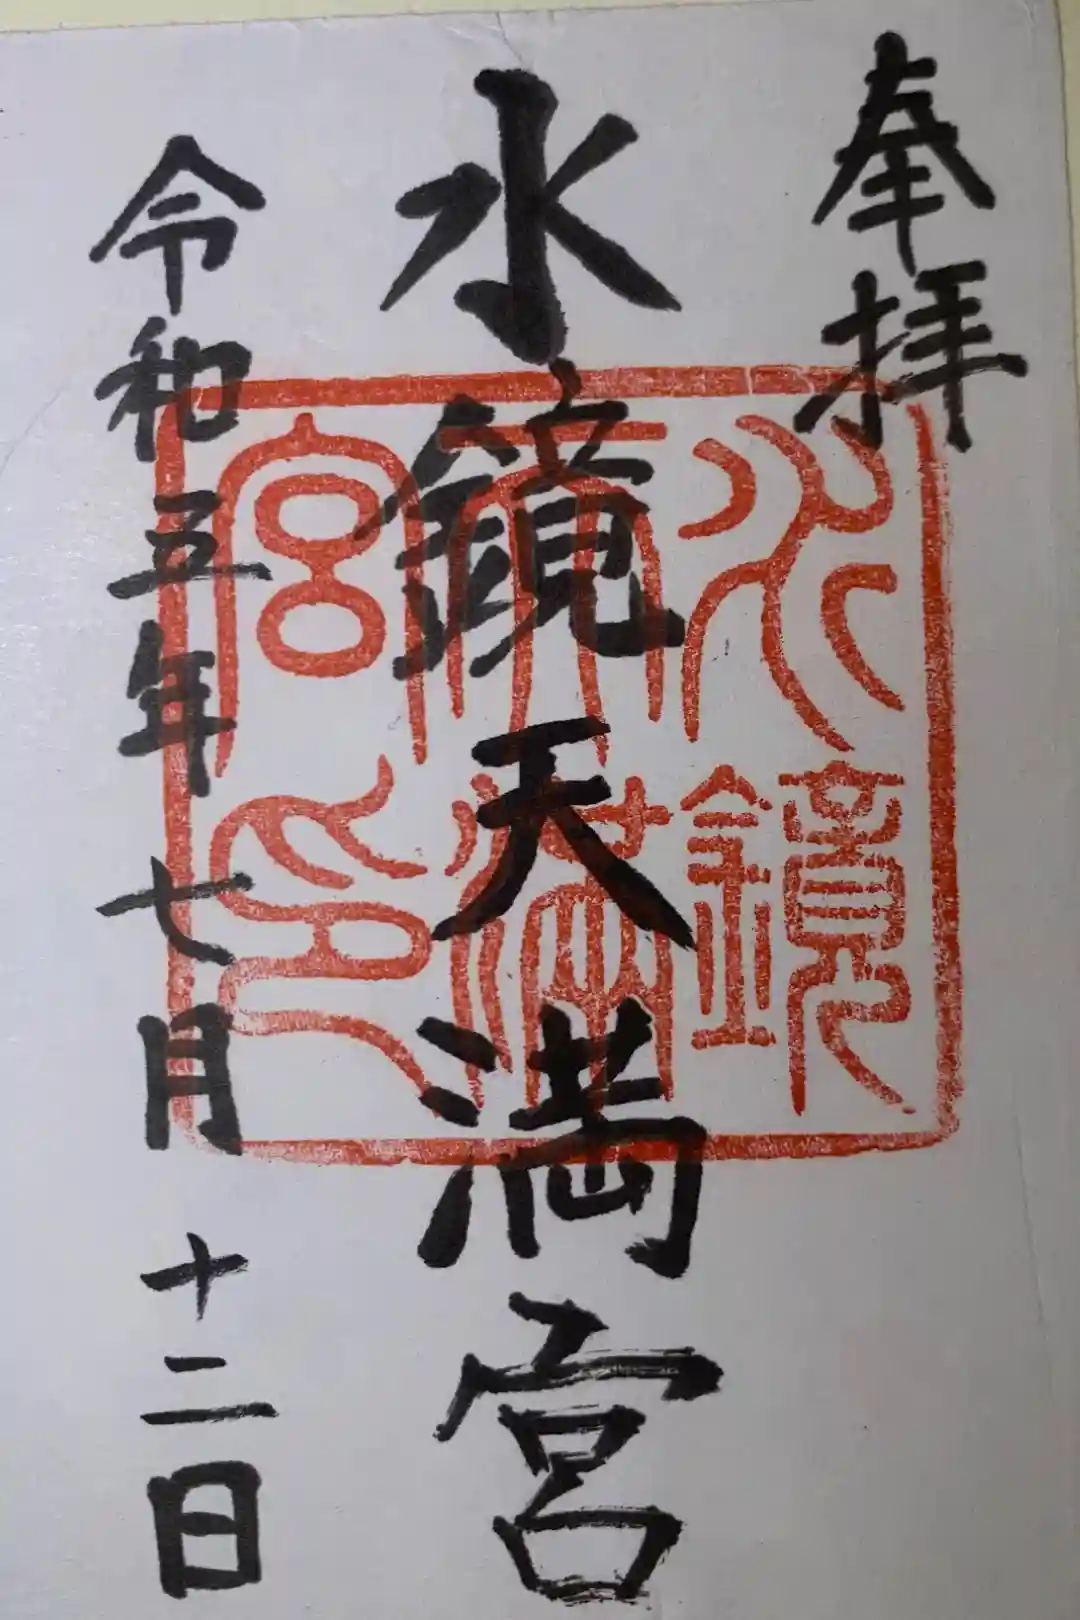 奉拝
水鏡天満宮
水鏡
天満
宮印
令和五年七月十二日